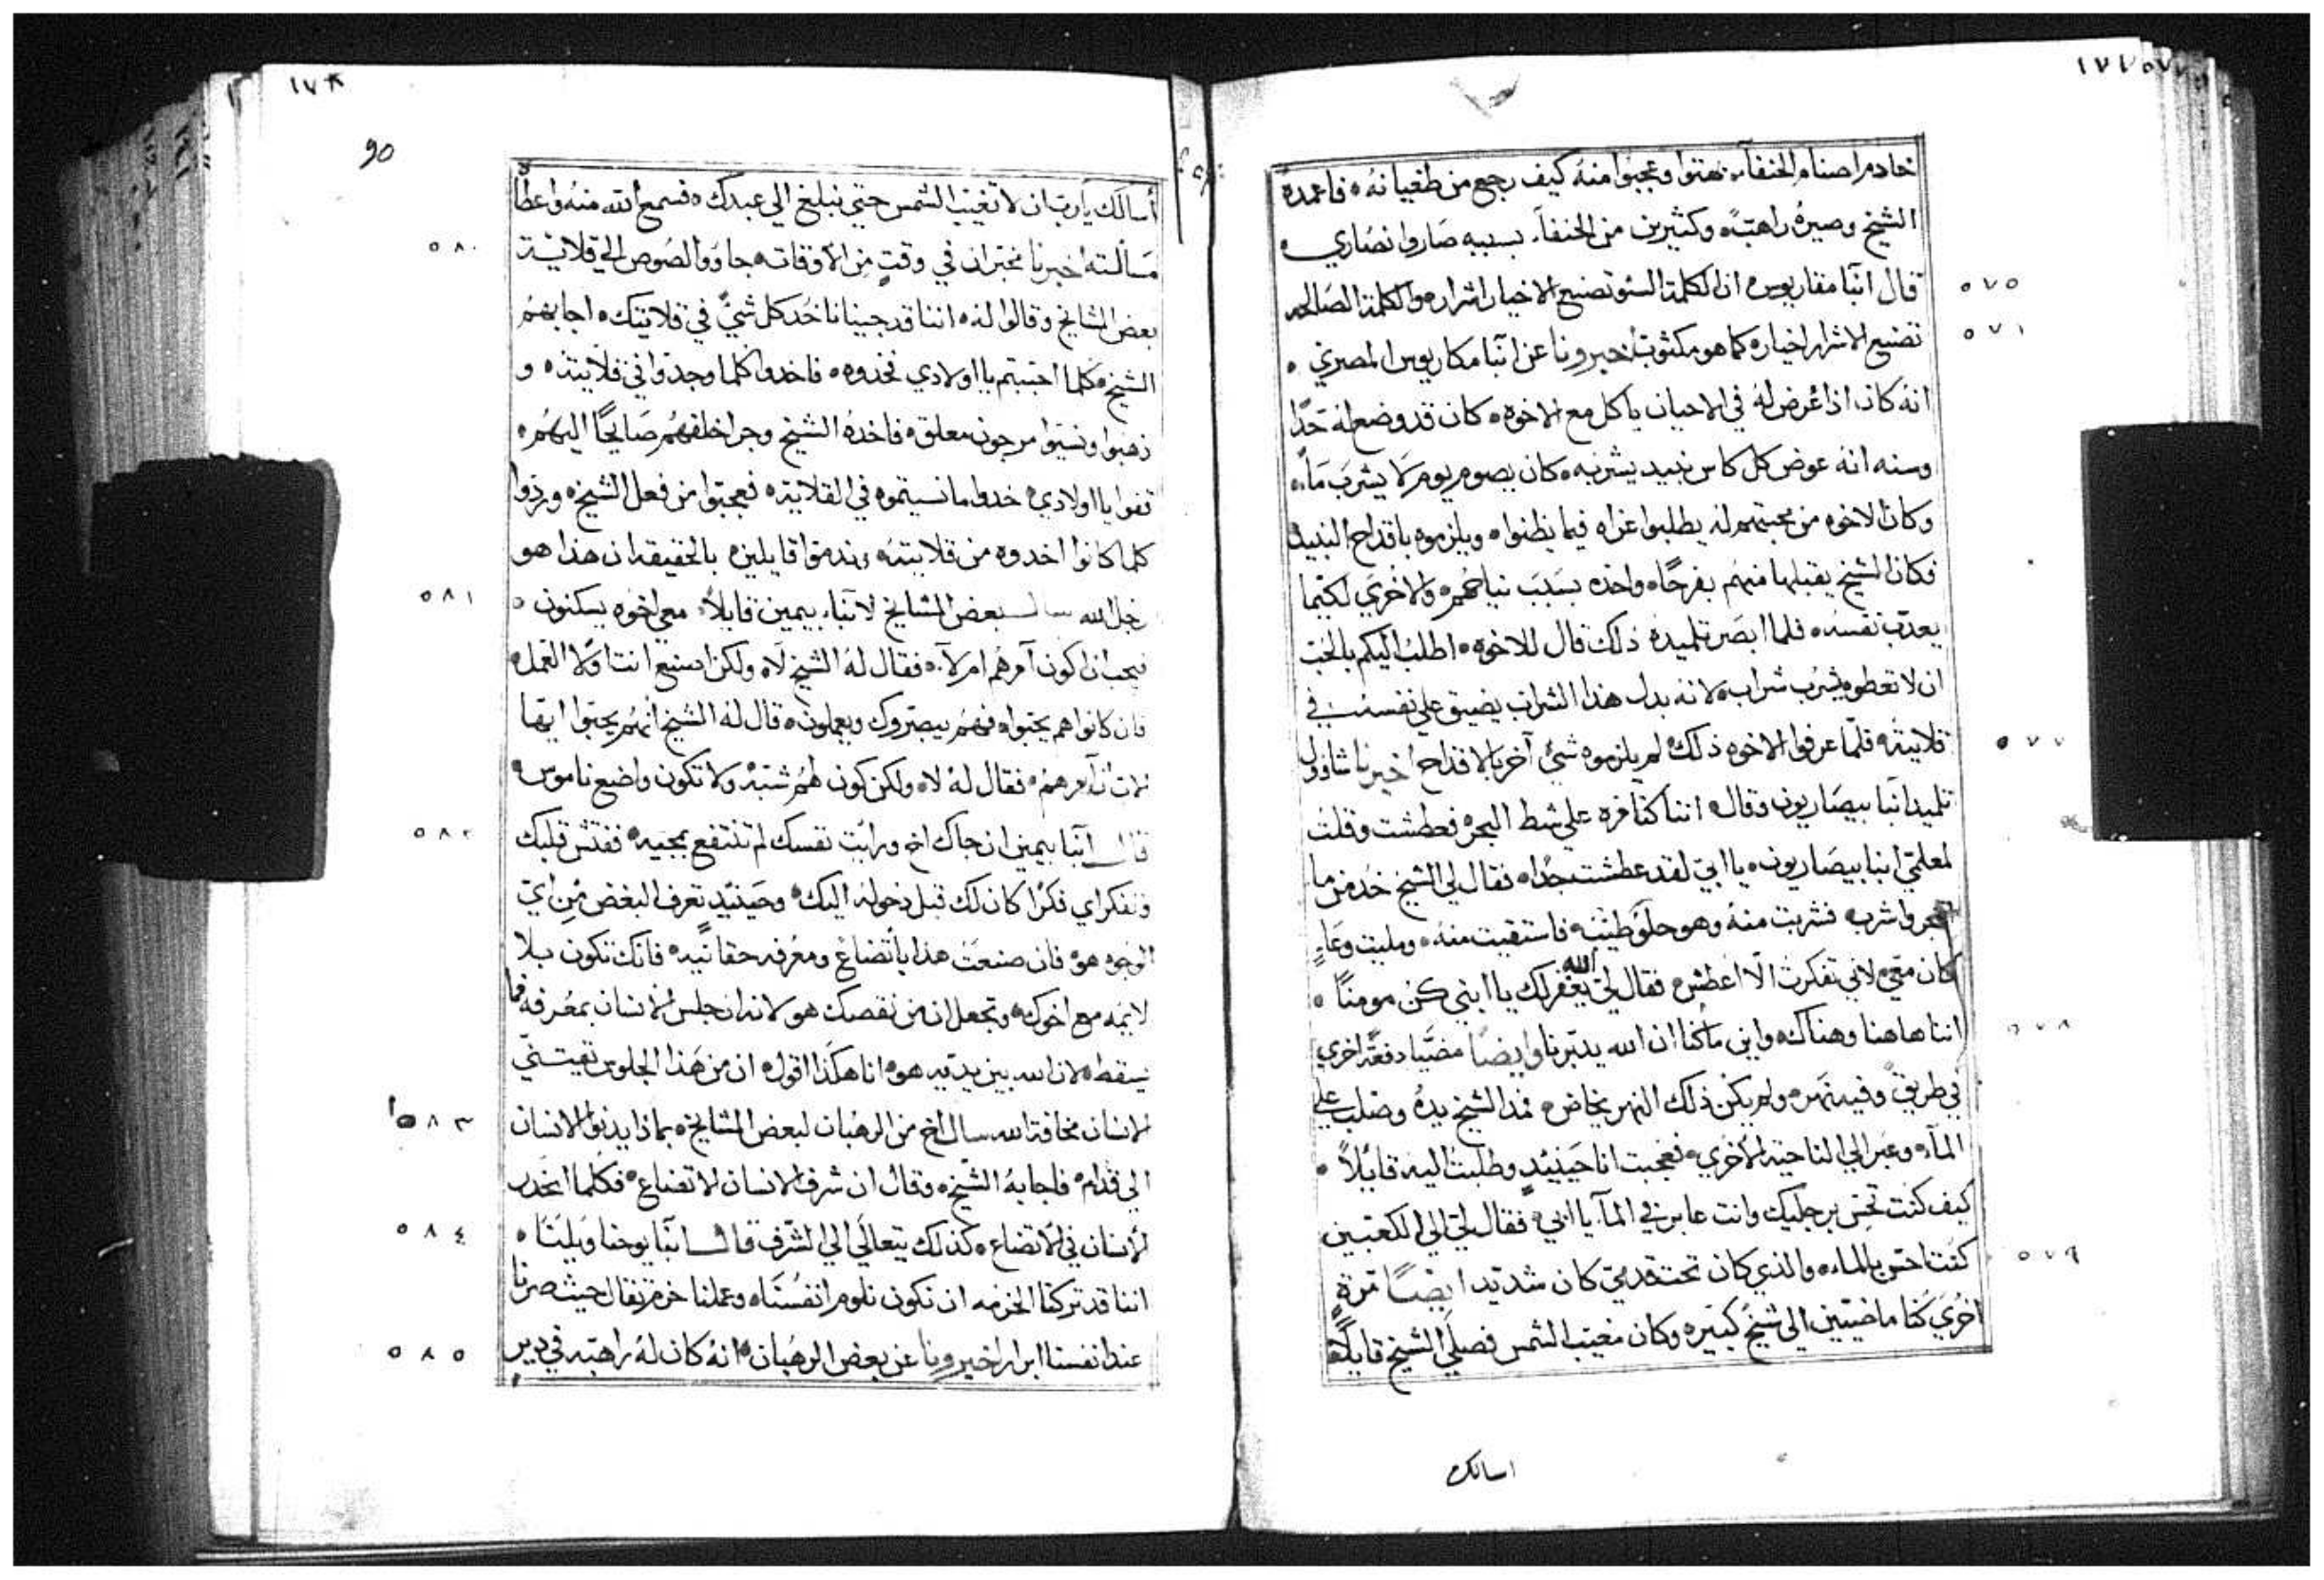 خادم اصنام الحنفآء بهتوا وعجبوا منه كيف رجع من طغيانه ه فاعمده
الشيخ وصيره راهبًا ه وكثيرين من الحنفآء بسببه صاروا نصاري ه
٥٧٥ قال انبا مقاريوس ه ان الكلمة السو تصنيع الاخيار اشرار ه والكلمة الصالحه
٥٧٦ تصنيع الاشرار اخيار ه كما هو مكتوب اخبرونا عن انبا مكاريوس المصري ه
انه كان اذا عُرض له في الاحيان ياكل مع الاخوه ه كان قد وضع له حدًا
وسنه انه عوض كل كاس نبيد يشربه ه كان يصوم يوم لا يشرب مآء ه
وكان الاخوه من محبتهم له يطلبوا عزاه فيما يظنوا ه ويلزموه باقداح النبيد
فكان الشيخ يقبلها منهم بفرح ه واحده بسبب نياحهم ه والاخري لكيما
يعدب نفسه ه فلما ابصر تلميده ذلك قال للاخوه ه اطلب اليكم بالحب
ان لا تعطوه يشرب شراب ه لانه بدل هذا الشراب يضيق علي نفسه في
٥٧٧ قلايته ه فلما عرفوا الاخوه ذلك لم يلزموه شي آخر بالاقداح اخبرنا شاوول
تلميد انبا بيصاريون وقال ه اننا كنا مره علي شط البحر فعطشت وقلت
لمعلمي انبا بيصاريون ه يا ابي لقد عطشت جدًا ه فقال لي الشيخ خد من ما
البحر واشرب فشربت منه وهو حلو طيب ه فاستقيت منه ه ومليت وعاءٍ
كان معي ه لاني تفكرت الا اعطش ه فقال لي الله يغفر لك يا ابني كن مومنًا ه
٥٧٨ اننا هاهنا وهناك ه واين ما كنا ان الله يدبرنا وايضًا مضينا دفعة اخري
في طريق وفيه نهر ه ولم يكن ذلك النهر يخاض ه فمد الشيخ يده وصلب علي
المآء ه وعبر الي الناحية الاخري ه فعجبت انا حينيد وطلبت اليه قايلاً ه
كيف كنت تحس برجليك وانت عابر في المآء يا ابي ه فقال لي الي الكعبين
٥٧٩ كنت احس بالماء ه والذي كان تحت قدمي كان شديد ايضًا مرة
اخري كنا ماضيين الي شيخ كبير ه وكان مغيب الشمس فصلي الشيخ قايلاً
اسالك
١٧٨
90
أسالك يا رب ان لا تغيب الشمس حتي نبلغ الي عبدك ه فسمع الله منه واعطا
٥٨٠ مسالته اخبرنا مخبر ان في وقتٍ من الاوقات ه جاوو الصوص الي قلاية
بعض المشايخ وقالوا له ه اننا قد جينا ناخد كل شيً في قلايتك ه اجابهم
الشيخ ه كلما احببتم يا اولادي فخدوه ه فاخدوا كلما وجدوا في قلايته ه و
ذهبوا ونسيوا مرجون معلق ه فاخده الشيخ وجرا خلفهم صايحًا اليهم ه
قفوا يا اولادي ه خدوا ما نسيتموه في القلايه ه فعجبوا من فعل الشيخ ه وردوا
كلما كانوا اخدوه من قلايته ه وندموا قايلين ه بالحقيقه ان هذا هو
٥٨١ رجل الله سال بعض المشايخ لانبا بيمين قايلاً ه معي اخوه يسكنون ه
فيجب ان اكون آمرهم ام لا ه فقال له الشيخ لا ه ولكن اصنع انت اولا العمل ه
فان كانوا هم يحبوا ه فهم يبصروك ويعملون ه قال له الشيخ انهم يحبوا ايضا
ان آمرهم ه فقال له لا ه ولكن كون لهم شبه ولا تكون واضع ناموس ه
٥٨٢ قال انبا بيمين ان جاك اخ ورايت نفسك لم تنتفع بمجيه ه ففتش قلبك
وتفكر اي فكرًا كان لك قبل دخوله اليك ه وحينيد تعرف البغض من اي
الوجوه هو ه فان صنعت هذا باتضاع ومعرفه حقانيه ه فانك تكون بلا
لايمه مع اخوك ه وتجعل ان من نقصك هو لانه ان جلس الانسان بمعرفه فما
يسقط ه لان الله بين يديه هو ه انا هكذا اقول ه ان من هذا الجلوس تقيتني
٥٨٣ الانسان مخافة الله سال اخ من الرهبان لبعض المشايخ ه بماذا الانسان
الي قدام ه فاجابه الشيخ ه وقال ان شرف الانسان لاتضاع ه فكلما انحدر
٥٨٤ لانسان في الاتضاع ه كذلك يتعالي الي الشرف قال انبا يوحنا ه
اننا قد تركنا الحزمه ان نكون نلوم انفسنا ه وعملنا حزم تقال حيث صرنا
٥٨٥ عند انفسنا ابرار اخبرونا عن بعض الرهبان ه انه كان له راهبه في دير